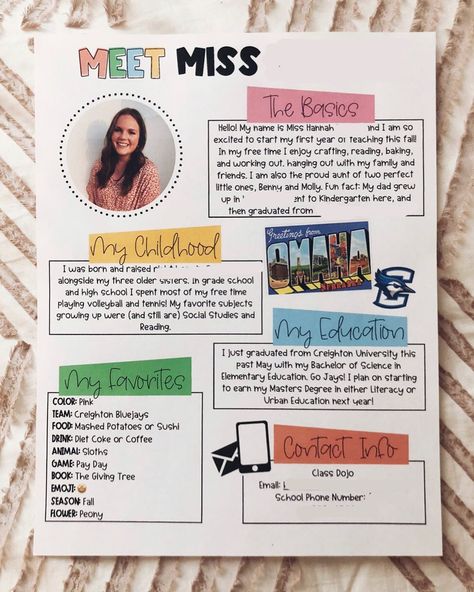 MEET MISS
The Basics
Hello! My name is Miss Hannah and I am so
excited to start my first year of teaching this fall!
In my free time I enjoy crafting, reading, baking,
and working out, hanging out with my family and
friends. I am also the proud aunt of two perfect
little ones, Benny and Molly. Fun fact: My dad grew
up in nt to Kindergarten here, and
then graduated from
My Childhood
I was born and raised
alongside my three older sisters. In grade school
and high school I spent most of my free time
playing volleyball and tennis! My favorite subjects
growing up were (and still are) Social Studies and
Reading.
Greetings from
OMAHA
NEBRASKA
My Education
I just graduated from Creighton University this
past May with my Bachelor of Science in
Elementary Education. Go Jays! I plan on starting
to earn my Masters Degree in either Literacy or
Urban Education next year!
My Favorites
COLOR: Pink
TEAM: Creighton Bluejays
FOOD: Mashed Potatoes or Sushi
DRINK: Diet Coke or Coffee
ANIMAL: Sloths
GAME: Pay Day
BOOK: The Giving Tree
EMOJI:
SEASON: Fall
FLOWER: Peony
Contact Info
Class Dojo
Email:
School Phone Number: